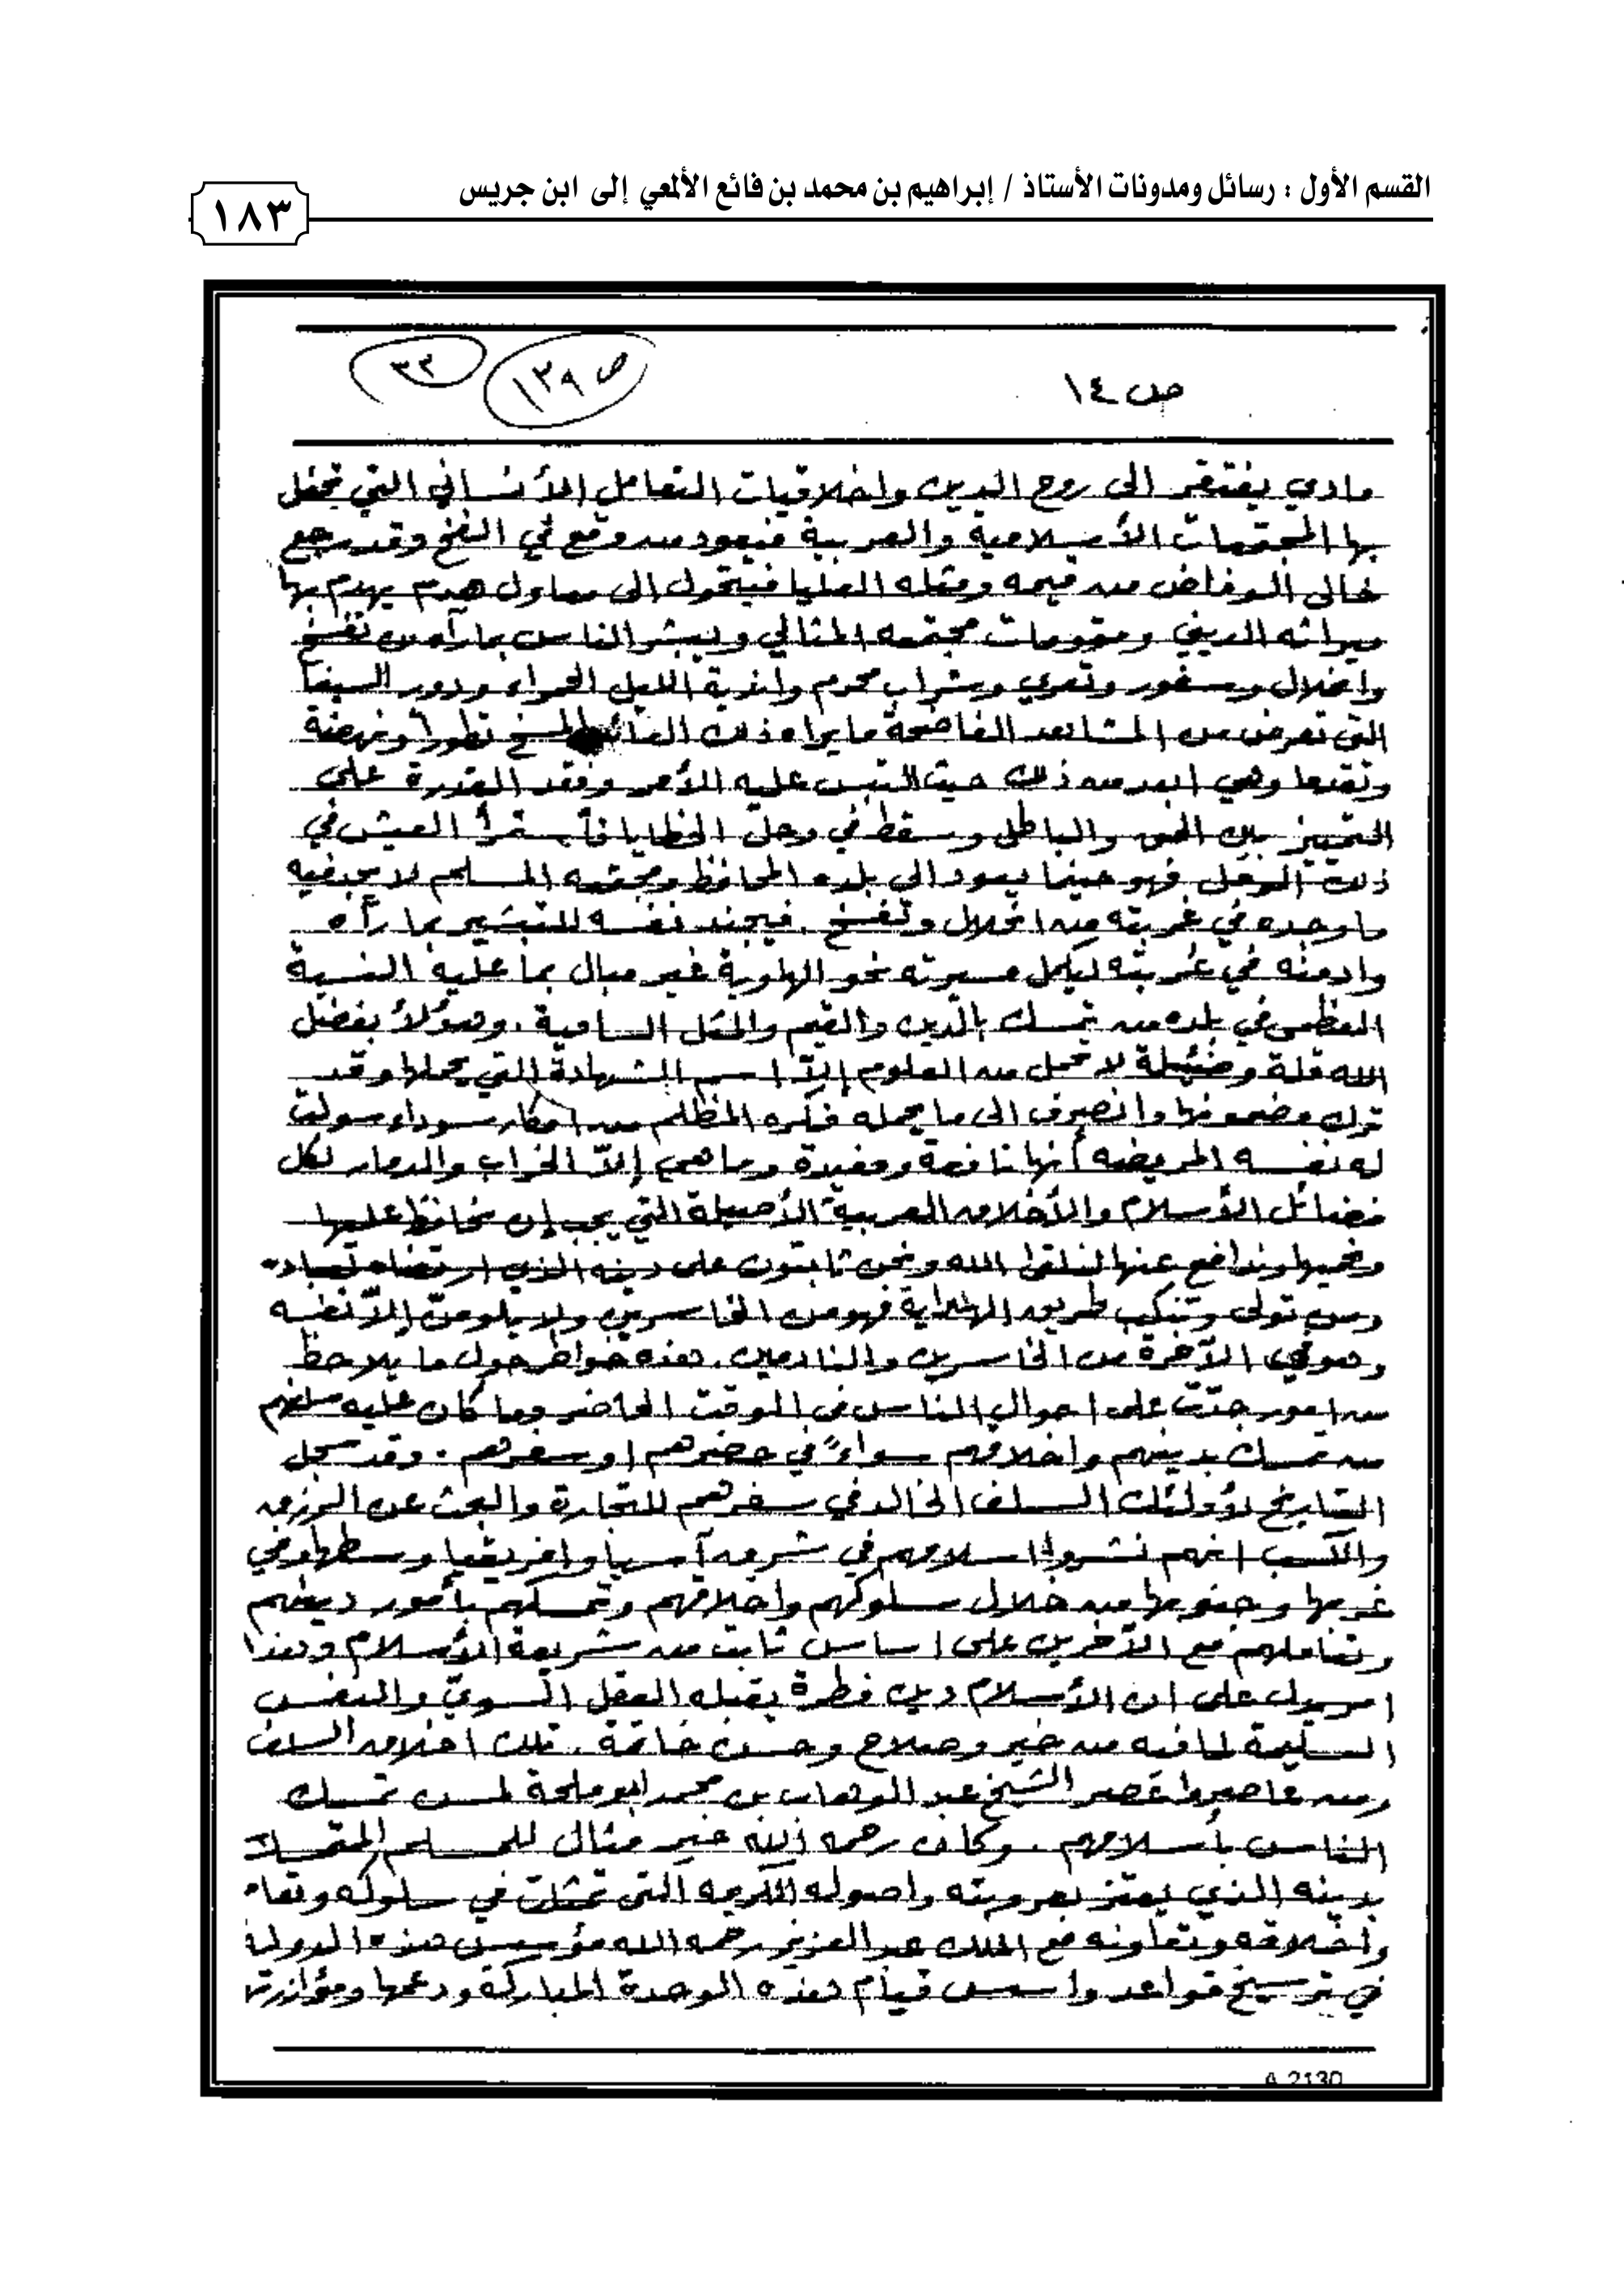 القسم الأول : رسائل ومدونات الأستاذ / إبراهيم بن محمد بن فائع الألمعي إلى ابن جريس
١٨٣
ص ١٤
ص ١٣٩
٣٣
مادي يفتقر الى روح الدين واخلاقيات التعامل الأنساني التي تحفل
بها المجتمعات الأسلامية والعربية فيعود من وقع في الفخ وقد رجع
خالي الوفاض من قيمه ومثله العليا فيتحول الى معاول هدم يهدم بها
ميراثه الديني ومقومات مجتمعه المثالي ويبشر الناس بما رآه من تفسخ
وانحلال وسفور وتعري وشراب محرم واندية الليل الحمراء ودور السينما
التي تعرض من المشاهد الفاضحة ما يراه ذلك المسخ تطوراً ونهضة
وتقدما وهي ابعد من ذلك حيث التبس عليه الأمر وفقد القدرة على
التمييز بين الحق والباطل وسقط في وحل الخطايا فأستمرأ العيش في
ذلك الوحل فهو حينما يعود الى بلده المحافظ ومجتمعه المسلم لا يجد فيه
ما وجده في غربته من انحلال وتفسخ . فيجند نفسه للتبشير بما رآه
وادمنه في غربته ليكمل مسيرته نحو الهاوية غير مبال بما عليه النسبة
العظمى في بلده من تمسك بالدين والقيم والمثل السامية . وهؤلاء بفضل
الله قلة وضئيلة لا تحمل من العلوم إلاّ اسم الشهادة التي يحملها وقد
ترك مضمونها وانصرف الى ما يحمله فكره المظلم من افكار سوداء سولت
له نفسه المريضه أنها نافعة ومفيدة وما هي إلاّ الخراب والدمار لكل
فضائل الأسلام والأخلاق العربية الأصيلة التي يجب إن نحافظ عليها
ونحميها وندافع عنها لنلقى الله ونحن ثابتون على دينه الذي ارتضاه لعباده
ومن تولى وتنكب طريق الهداية فهو من الخاسرين ولا يلومنّ إلاّ نفسه
وهو في الآخرة من الخاسرين والنادمين . هذه خواطر حول ما يلاحظ
من امور جدّت على احوال الناس في الوقت الحاضر وما كان عليه سلفهم
من تمسك بدينهم واخلاقهم سواءً في حضرهم او سفرهم . وقد سجل
التاريخ لأولئك السلف الخالد في سفرهم للتجارة والبحث عن الرزق
والكسب انهم نشروا اسلامهم في شرق آسيا وافريقيا وسطها وفي
غربها وجنوبها من خلال سلوكهم واخلاقهم وتمسكهم بأمور دينهم
وتعاملهم مع الآخرين على اساس ثابت من شريعة الأسلام وهذا
امر يدل على ان الأسلام دين فطرة يقبله العقل السويّ والنفس
السليمة لما فيه من خير وصلاح وحسن خاتمة . تلك اخلاق السلف
ومن عاصروا عصر الشيخ عبد الوهاب بن محمد ابو ملحة لمس تمسك
الناس بأسلامهم . وكان رحمه الله خير مثال للمسلم المتمسك
بدينه الذي يعتز بعروبته واصوله الكريمه التي تمثلت في سلوكه
واخلاقه وتعاونه مع الملك عبد العزيز رحمه الله مؤسس هذه الدولة
في ترسيخ قواعد واسس قيام هذه الوحدة المباركة ودعمها ومؤازرتها
A 2130